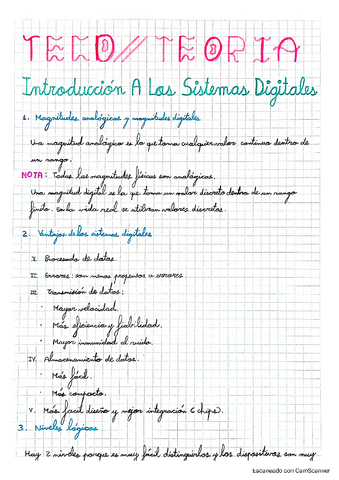 TECO // TEORIA
Introducción A Los Sistemas Digitales
1. Magnitudes analógicas y magnitudes digitales
Una magnitud analógica es la que toma cualquier valor continuo dentro de
un rango.
NOTA: Todas las magnitudes físicas son analógicas.
Una magnitud digital es la que toma un valor discreto dentro de un rango
finito. En la vida real se utilizan valores discretos.
2. Ventajas de los sistemas digitales
I. Procesado de datos.
II. Errores: son menos propensos a errores.
III. Transmisión de datos:
· Mayor velocidad.
· Más eficiencia y fiabilidad.
· Mayor inmunidad al ruido.
IV. Almacenamiento de datos.
· Más fácil.
· Más compacto.
V. Más facil diseño y mejor integración (chips).
3. Niveles lógicos
Hay 2 niveles porque es muy fácil distinguirlos y los dispositivos son muy
Escaneado con CamScanner